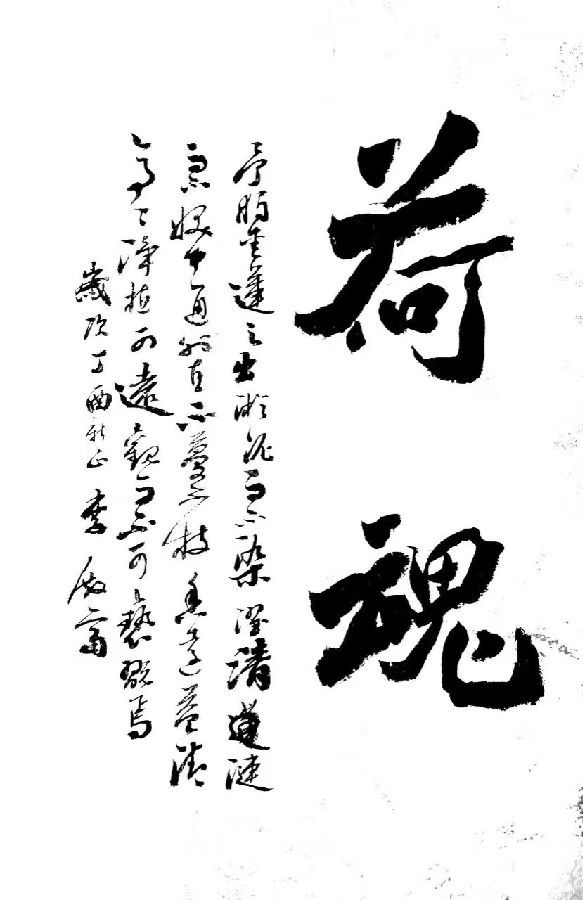 荷魂
予独爱蓮之出淤泥而不染濯清漣
而不妖中通外直不蔓不枝香遠益清
亭亭淨植可遠觀而不可褻翫焉
歲次丁酉 李